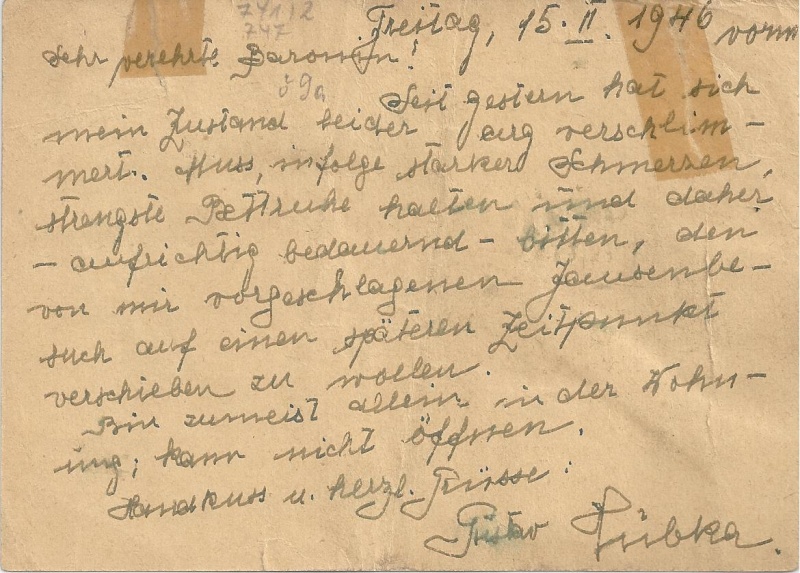 741/2
747
Freitag, 15. II. 1946 vorm
Sehr verehrte Baronin!
59a
Seit gestern hat sich
mein Zustand leider arg verschlim-
mert. Muss, infolge starker Schmerzen,
strengste Bettruhe halten und daher
- aufrichtig bedauernd - bitten, den
von mir vorgeschlagenen Jausenbe-
such auf einen späteren Zeitpunkt
verschieben zu wollen.
Bin zumeist allein in der Wohn-
ung; kann nicht öffnen.
Handkuss u. herzl. Grüsse:
Gustav